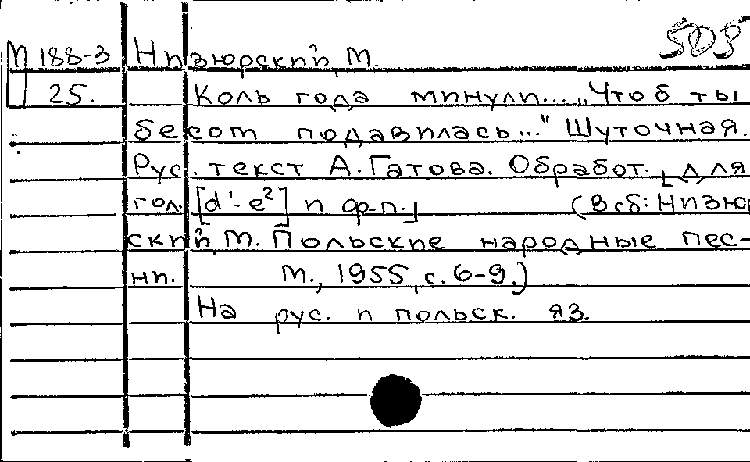 М 188-3 Низюрский, М. 505
25. Коль года минули... „Чтоб ты
бесом подавилась..." Шуточная.
Рус. текст А. Гатова. Обработ. [для
гол. [d¹-e²] и ф-п.] (В сб: Низюр
ский, М. Польские народные пес-
ни. М., 1955, с. 6-9.)
На рус. и польск. яз.